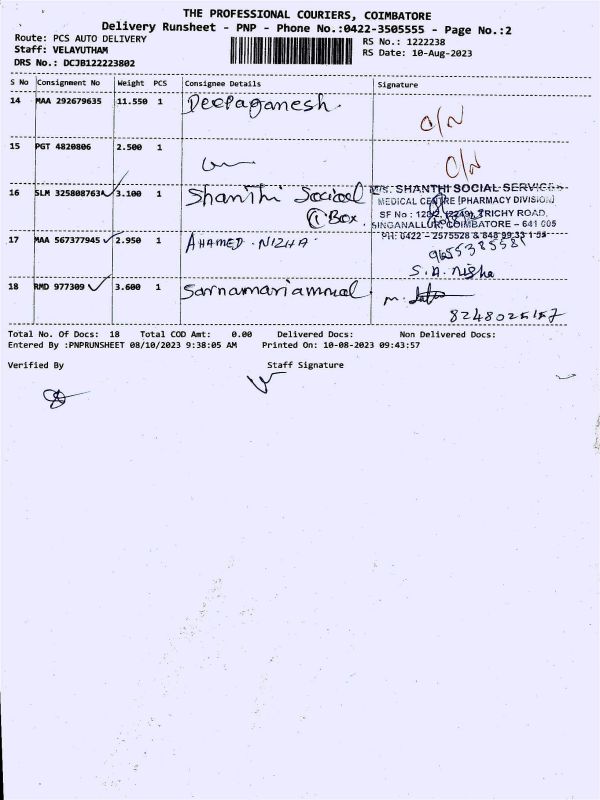 THE PROFESSIONAL COURIERS, COIMBATORE
Delivery Runsheet - PNP - Phone No.:0422-3505555 - Page No.:2
Route: PCS AUTO DELIVERY
RS No.: 1222238
Staff: VELAYUTHAM
RS Date: 10-Aug-2023
DRS No.: DCJB122223802
S No Consignment No Weight PCS Consignee Details Signature
14 MAA 292679635 11.550 1 Deepaganesh. O/N
15 PGT 4820806 2.500 1 O/N
16 SLM 325808763 3.100 1 Shanthi Social
1 Box.
SHANTHI SOCIAL SERVICES
MEDICAL CENTRE (PHARMACY DIVISION)
SF No : TRICHY ROAD,
SINGANALLUR, COIMBATORE – 641 005
PH: 0422 – 2575528 &
17 MAA 567377945 2.950 1 AHAMED . NIZHA.
9655385581
S.A. Nisha
18 RMD 977309 3.600 1 Sarnamariammal. M.
8248025157
Total No. Of Docs: 18 Total COD Amt: 0.00 Delivered Docs: Non Delivered Docs:
Entered By :PNPRUNSHEET 08/10/2023 9:38:05 AM Printed On: 10-08-2023 09:43:57
Verified By Staff Signature